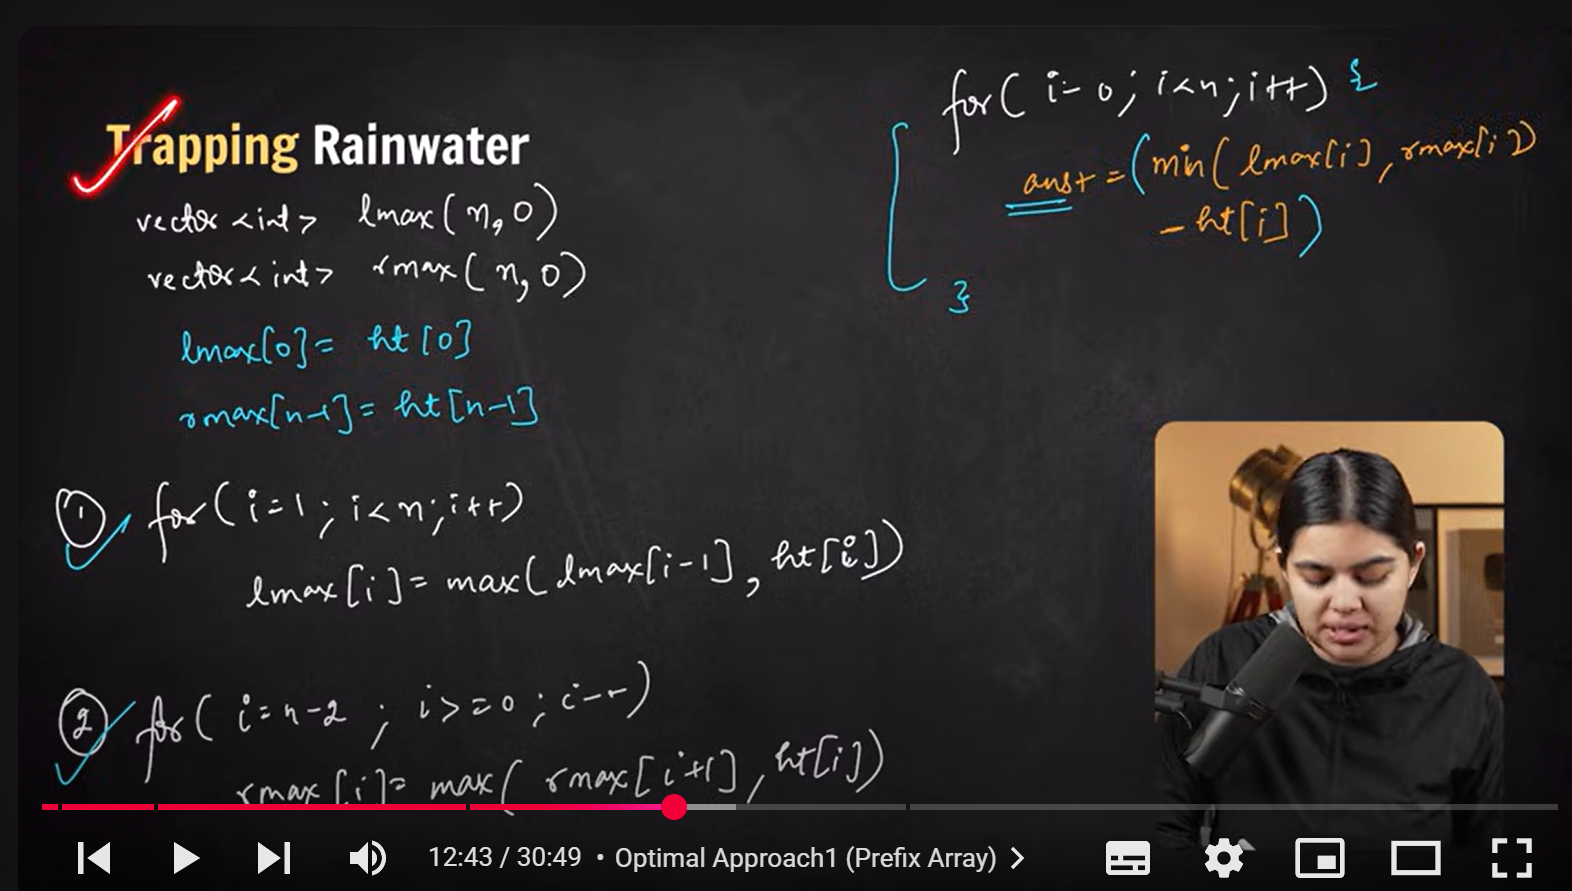 Trapping Rainwater
vector <int> lmax(n,0)
vector<int> rmax(n,0)
lmax[0]= ht[0]
rmax[n-1]= ht[n-1]
① for(i=1; i<n; i++)
lmax[i]= max(lmax[i-1], ht[i])
② for(i=n-2 ; i>=0 ; i--)
rmax[i]= max( rmax[i+1], ht[i])
for( i=0; i<n; i++) {
ans+=(min( lmax[i], rmax[i])
-ht[i])
}
12:43 / 30:49 • Optimal Approach1 (Prefix Array)